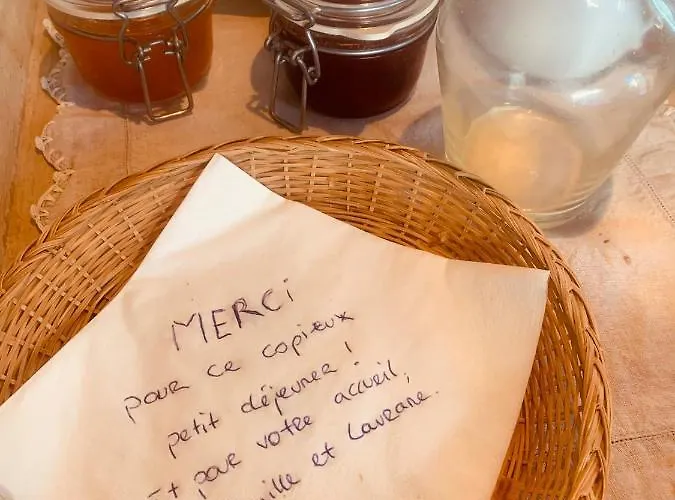 MERCi
pour ce copieux
petit déjeuner !
Et pour votre accueil,
et Laurane.